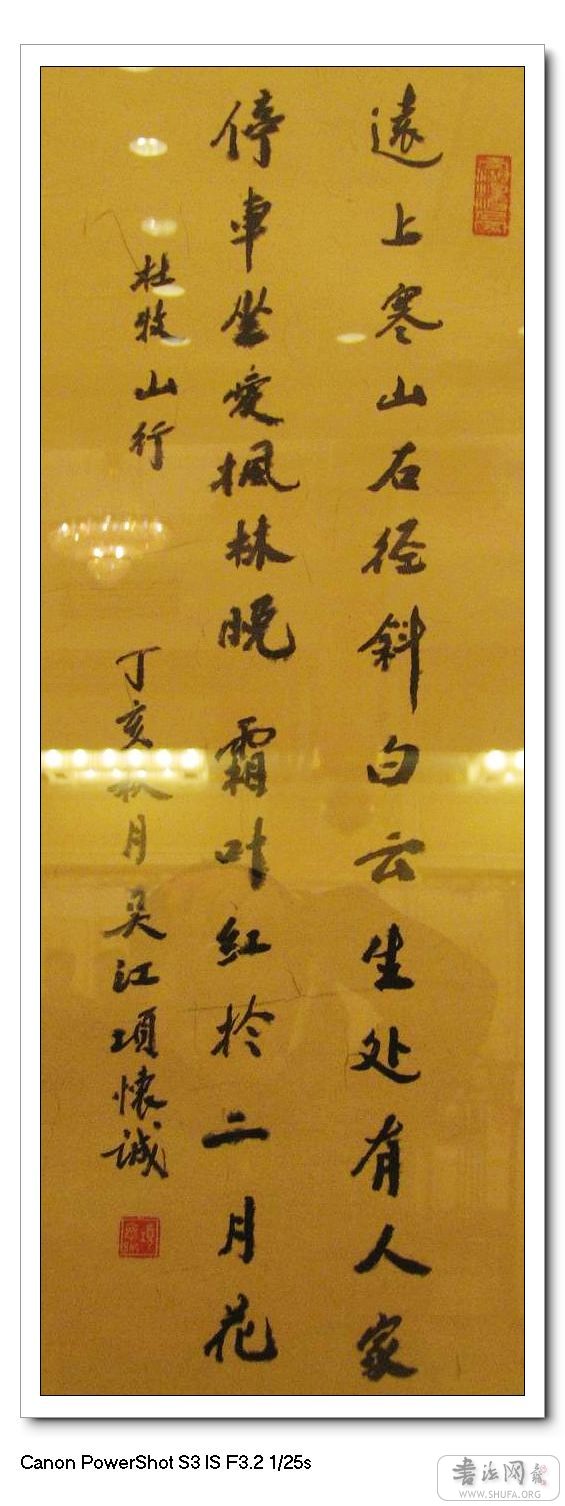 遠上寒山石径斜白云生处有人家
停車坐愛楓林晚霜叶紅於二月花
杜牧山行
丁亥秋月吴江項懷誠
Canon PowerShot S3 IS F3.2 1/25s
書法网
WWW.SHUFA.ORG